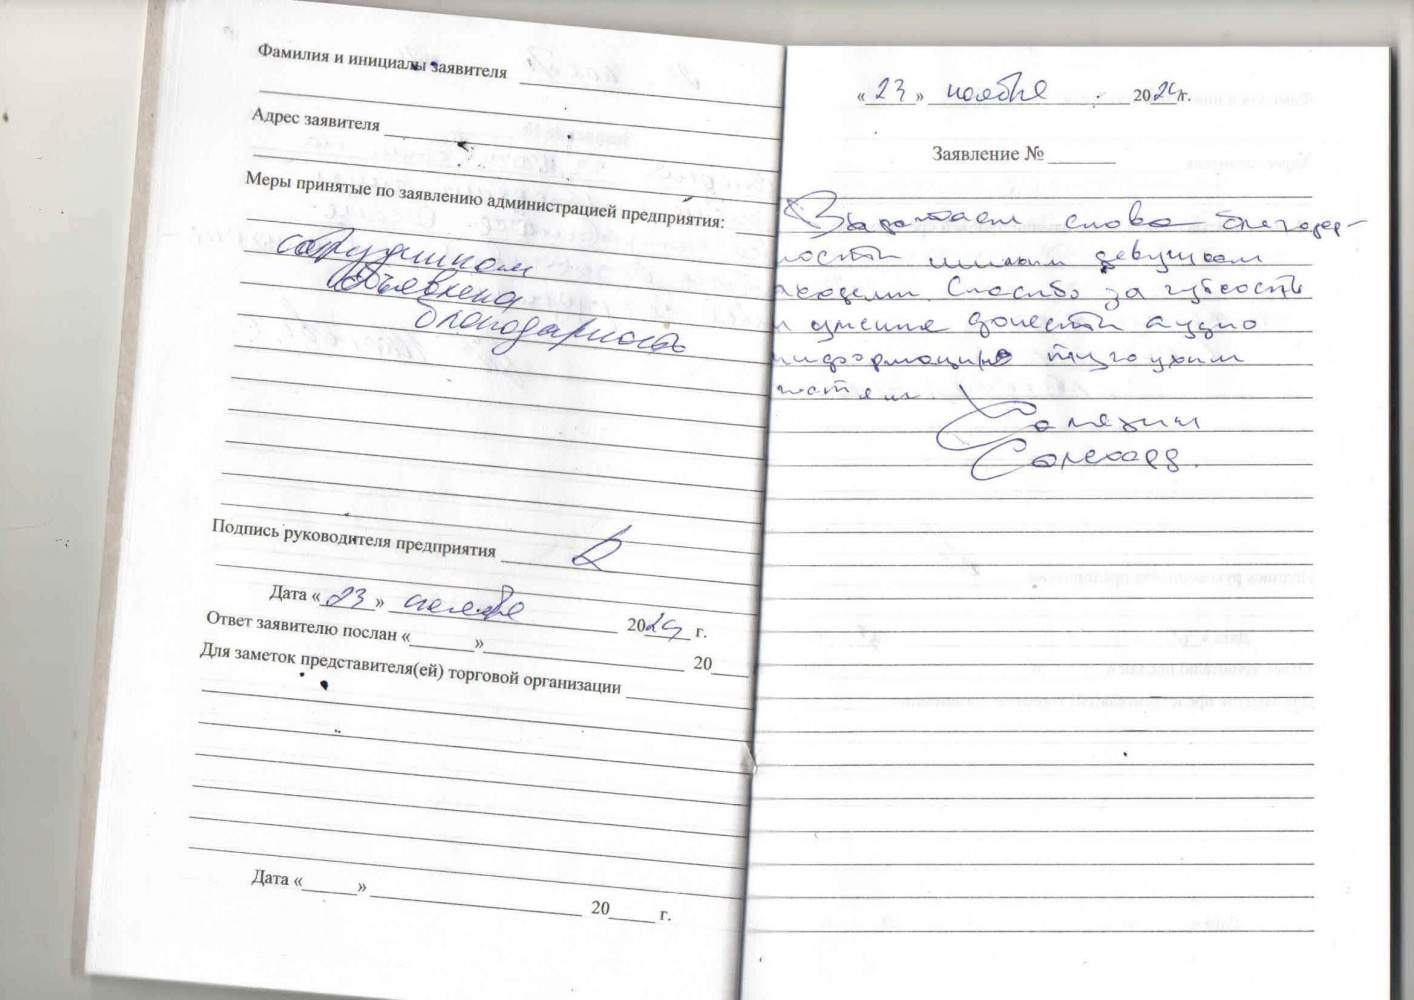 Фамилия и инициалы заявителя
Адрес заявителя
Меры принятые по заявлению администрацией предприятия:
сотрудникам
объявлена
благодарность
Подпись руководителя предприятия
Дата «23» ноября 2024 г.
Ответ заявителю послан «» 20
Для заметок представителя(ей) торговой организации
Дата «» 20 г.
«23» ноября 2024г.
Заявление №
Выражаем слова благодар-
ности милым девушкам
Спасибо за чуткость
и умение донести аудио
информацию тугоухим
гостям.
Салехард.